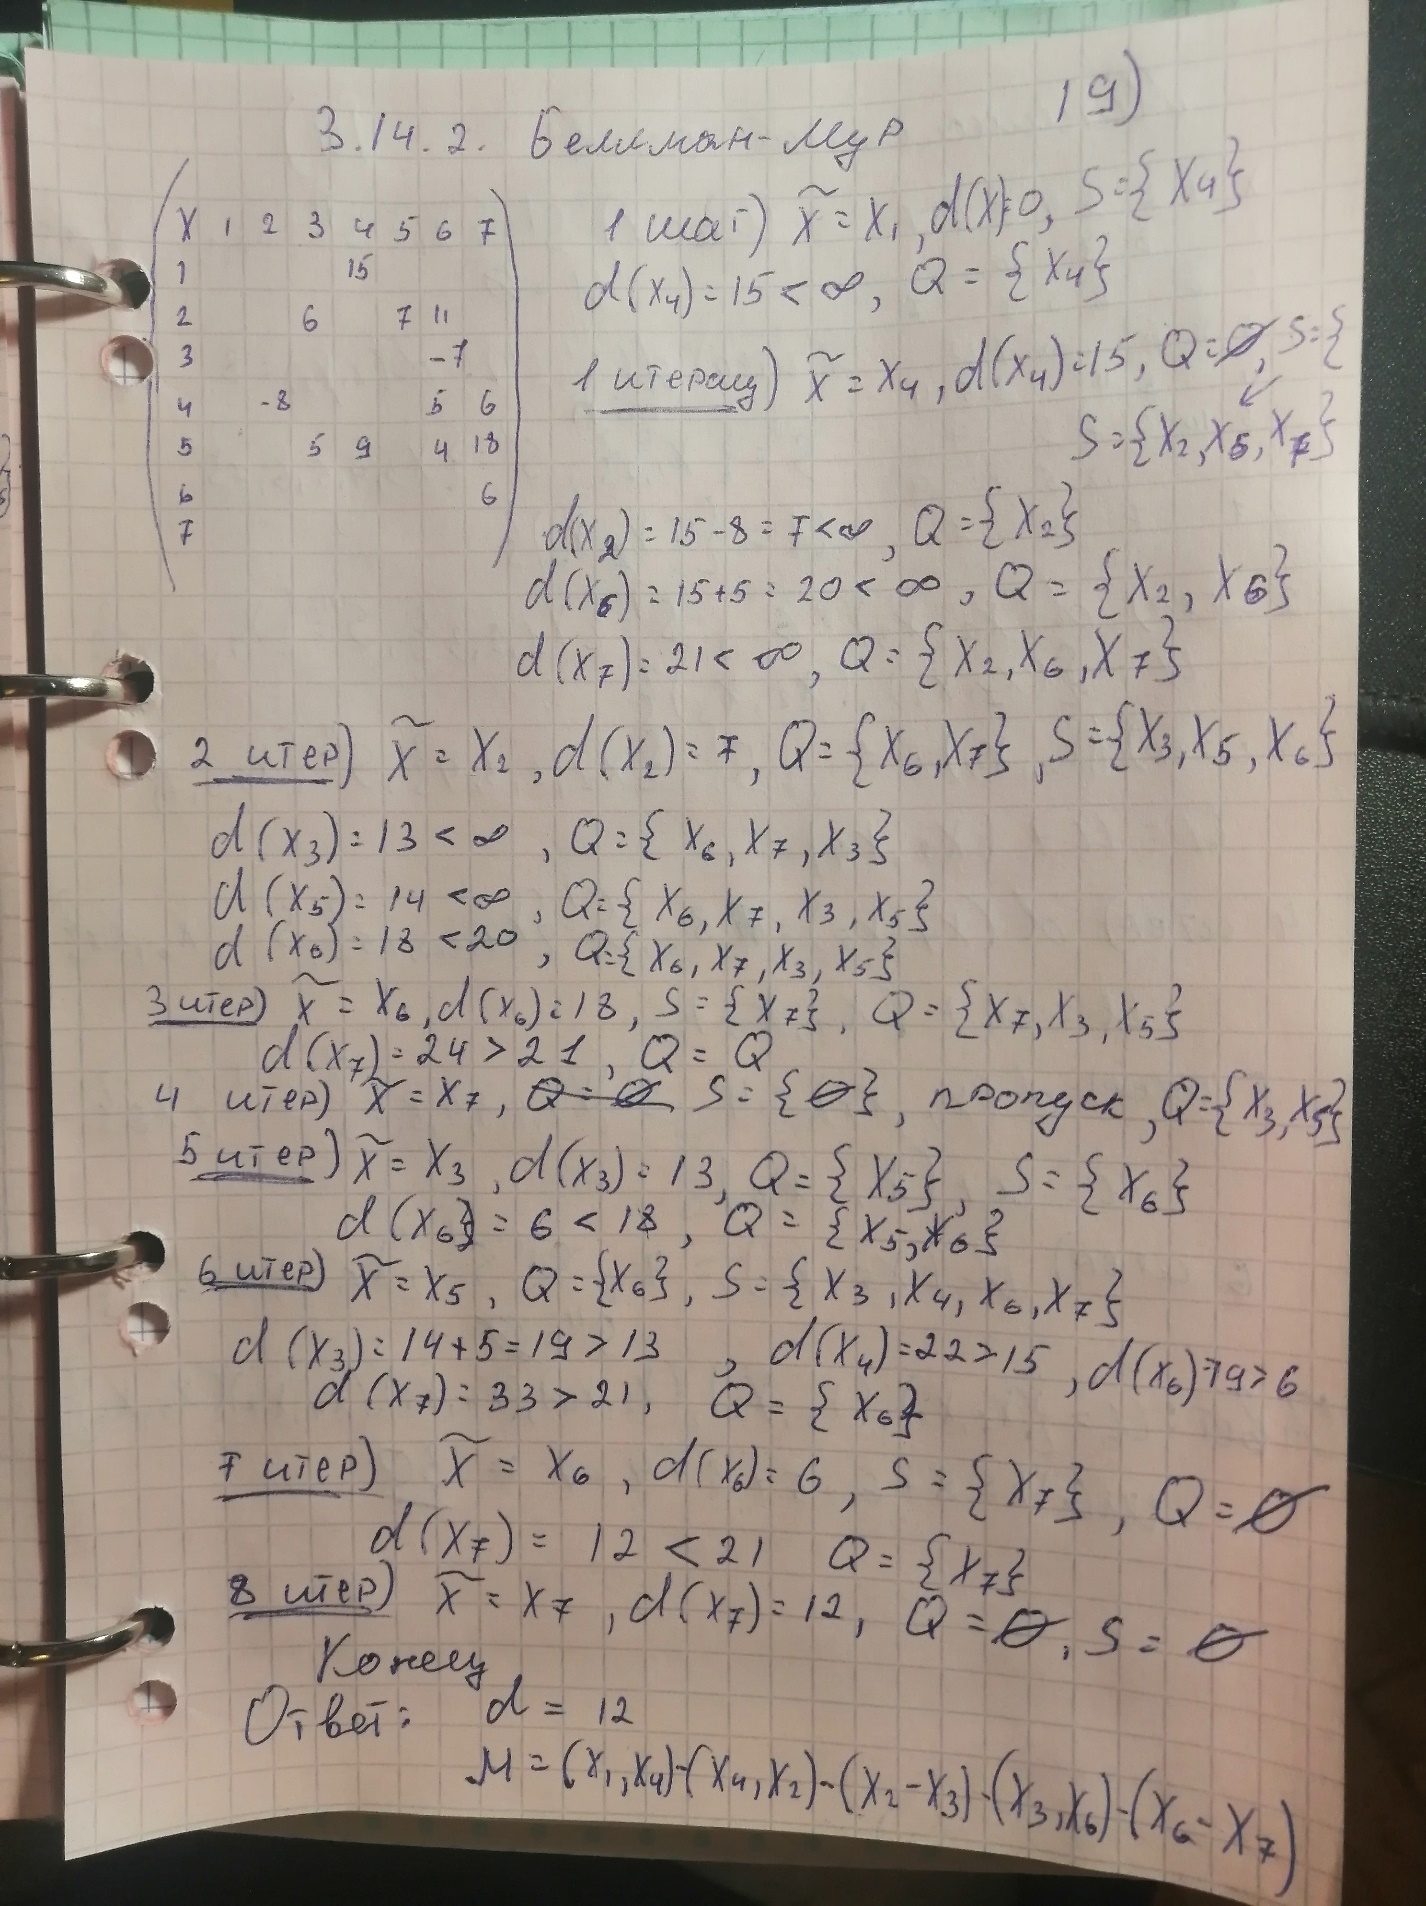 19)
3.14.2. Беллман-Мур
X 1 2 3 4 5 6 7
1 15
2 6 7 11
3 -7
4 -8 5 6
5 5 9 4 18
6 6
7
1 шаг) x̃ = x₁, d(x)=0, S={x₄}
d(x₄)=15<∞, Q={x₄}
1 итерац) x̃ = x₄, d(x₄)=15, Q=∅, S={
S={x₂, x₆, x₇}
d(x₂)=15-8=7<∞, Q={x₂}
d(x₆)=15+5=20<∞, Q={x₂, x₆}
d(x₇)=21<∞, Q={x₂, x₆, x₇}
2 итер) x̃ = x₂, d(x₂)=7, Q={x₆, x₇}, S={x₃, x₅, x₆}
d(x₃)=13<∞, Q={x₆, x₇, x₃}
d(x₅)=14<∞, Q={x₆, x₇, x₃, x₅}
d(x₆)=18<20, Q={x₆, x₇, x₃, x₅}
3 итер) x̃ = x₆, d(x₆)=18, S={x₇}, Q={x₇, x₃, x₅}
d(x₇)=24>21, Q=Q
4 итер) x̃ = x₇, Q=∅ S={∅}, пропуск, Q={x₃, x₅}
5 итер) x̃ = x₃, d(x₃)=13, Q={x₅}, S={x₆}
d(x₆}=6<18, Q={x₅, x₆}
6 итер) x̃ = x₅, Q={x₆}, S={x₃, x₄, x₆, x₇}
d(x₃)=14+5=19>13, d(x₄)=22>15, d(x₆)=19>6
d(x₇)=33>21, Q={x₆}
7 итер) x̃ = x₆, d(x₆)=6, S={x₇}, Q=∅
d(x₇)=12<21 Q={x₇}
8 итер) x̃ = x₇, d(x₇)=12, Q=∅, S=∅
Конец
Ответ: d = 12
M=(x₁,x₄)-(x₄,x₂)-(x₂-x₃)-(x₃,x₆)-(x₆-x₇)